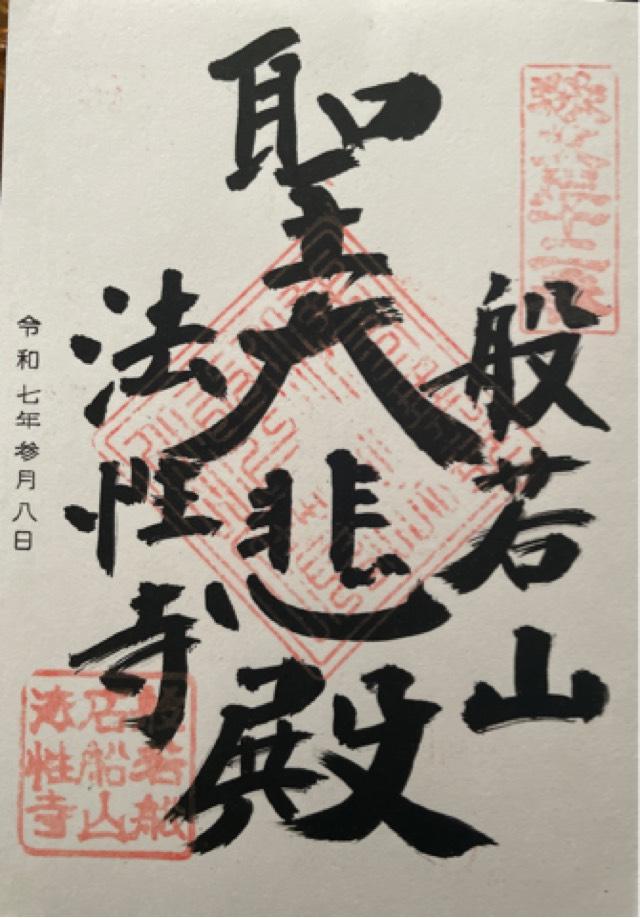 般若山
聖大悲殿
法性寺
令和七年参月八日
石船山
法性寺